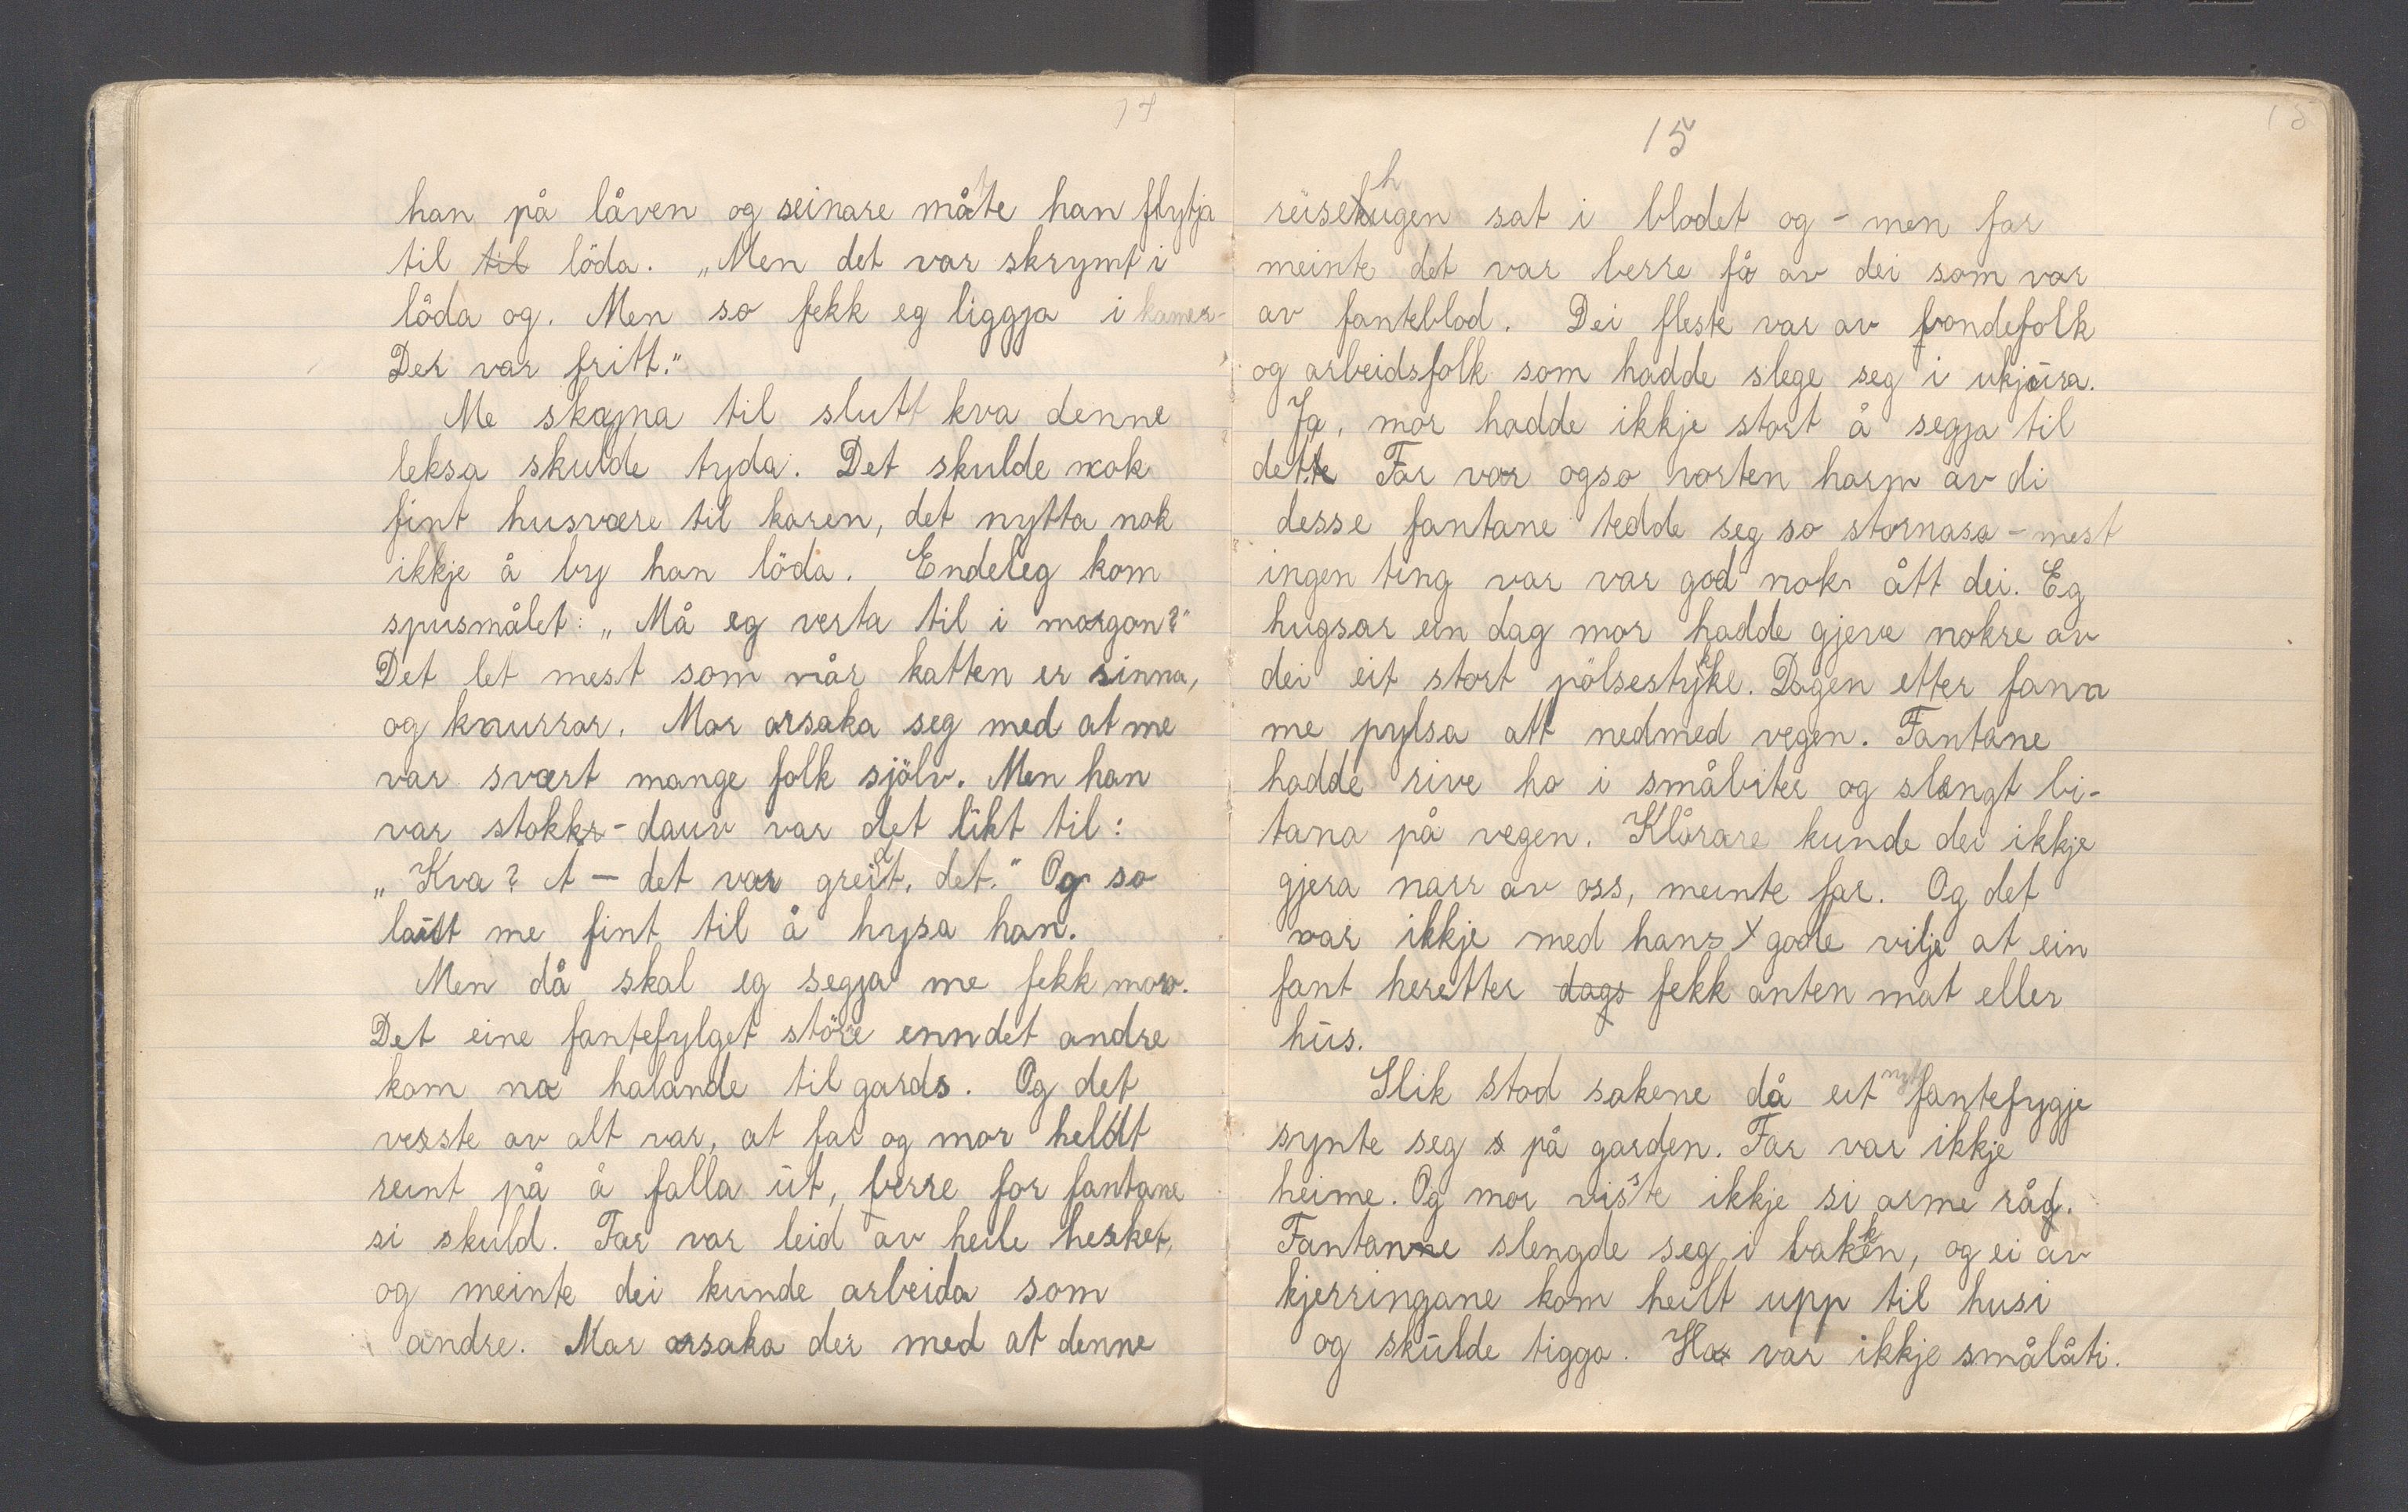 14
han på låven og seinare måtte han flytja
til til löda. „Men det var skrymt i
löda og. Men so fekk eg liggja i kamer-
Der var fritt."
Me skjøna til slutt kva denne
leksa skulde tyda. Det skulde nok
fint husvære til karen, det nytta nok
ikkje å by han löda. Endeleg kom
spusmålet: „Må eg verta til i morgon?"
Det let mest som når katten er sinna,
og knurrar. Mor orsaka seg med at me
var svært mange folk sjölv. Men han
var stokk-dauv var det likt til:
„Kva? A – det var greidt, det." Og so
laut me fint til å hysa han.
Men då skal eg segja me fekk moro.
Det eine fantefylget störe enn det andre
kom no halande til gards. Og det
verste av alt var, at far og mor heldt
reint på å falla ut, berre for fantane
si skuld. Far var leid av heile hesket,
og meinte dei kunde arbeida som
andre. Mor orsaka der med at denne
15
15
reisehugen sat i blodet og – men far
meinte det var berre få av dei som var
av fanteblod. Dei fleste var av bondefolk
og arbeidsfolk som hadde slege seg i ukjura.
Ja, mor hadde ikkje stort å segja til
dette Far var ogso vorten harm av di
desse fantane tedde seg so stornasa – mest
ingen ting var var god nok ått dei. Eg
hugsar ein dag mor hadde gjeve nokre av
dei eit stort pölsestykke. Dagen etter fann
me pylsa att nedmed vegen. Fantane
hadde rive ho i småbiter og slengt bi-
tana på vegen. Klårare kunde dei ikkje
gjera narr av oss, meinte far. Og det
var ikkje med hans gode vilje at ein
fant heretter dags fekk anten mat eller
hus.
Slik stod sakene då eit nytt fantefygje
synte seg s på garden. Far var ikkje
heime. Og mor visste ikkje si arme råd.
Fantane slengde seg i bakken, og ei av
kjerringane kom heilt upp til husi
og skulde tigga. Ho var ikkje smålåti.